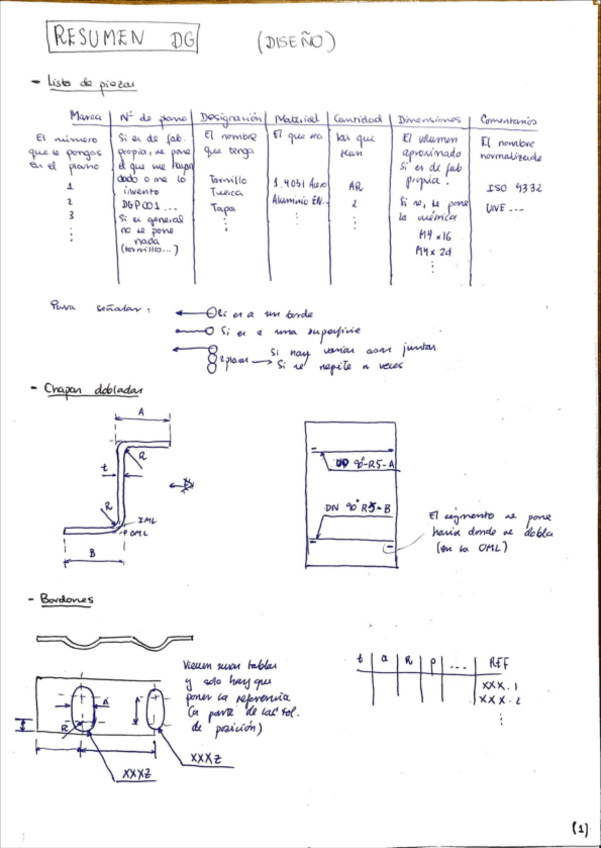 RESUMEN DG (DISEÑO)
- Lista de piezas
Marca | Nº de plano | Designación | Material | Cantidad | Dimensiones | Comentarios
El número | Si es de fab. | El nombre | El que sea | las que | El volumen | El nombre
que le pongas | propia, se pone | que tenga | sean | aproximado | normalizado
en el plano | el que me haya | Si es de fab
1 | dado o me lo | Tornillo | 1.4031 Acero | AR | propia. | ISO 4332
2 | invento | Tuerca | Aluminio EN.. | 2 | Si no, se pone | UNE ...
3 | DGP001 ... | Tapa | la métrica
Si es general | M4 x 16
no se pone | M4 x 20
nada
(tornillos...)
Para señalar:
Si es a un borde
Si es a una superficie
Si hay varias casas juntas
2 places → Si se repite n veces
- Chapas dobladas
A
R
t
R
IML
OML
B
90º-R5-A
DN 90º R5-B
El segmento se pone
hacia donde se dobla
(en la OML)
- Bordones
Vienen en las tablas
y solo hay que
poner la referencia
(a parte de las tol.
de posición)
A
R
XXXZ
XXXZ
t | a | R | p | ... | REF
XXX.1
XXX.2
(1)